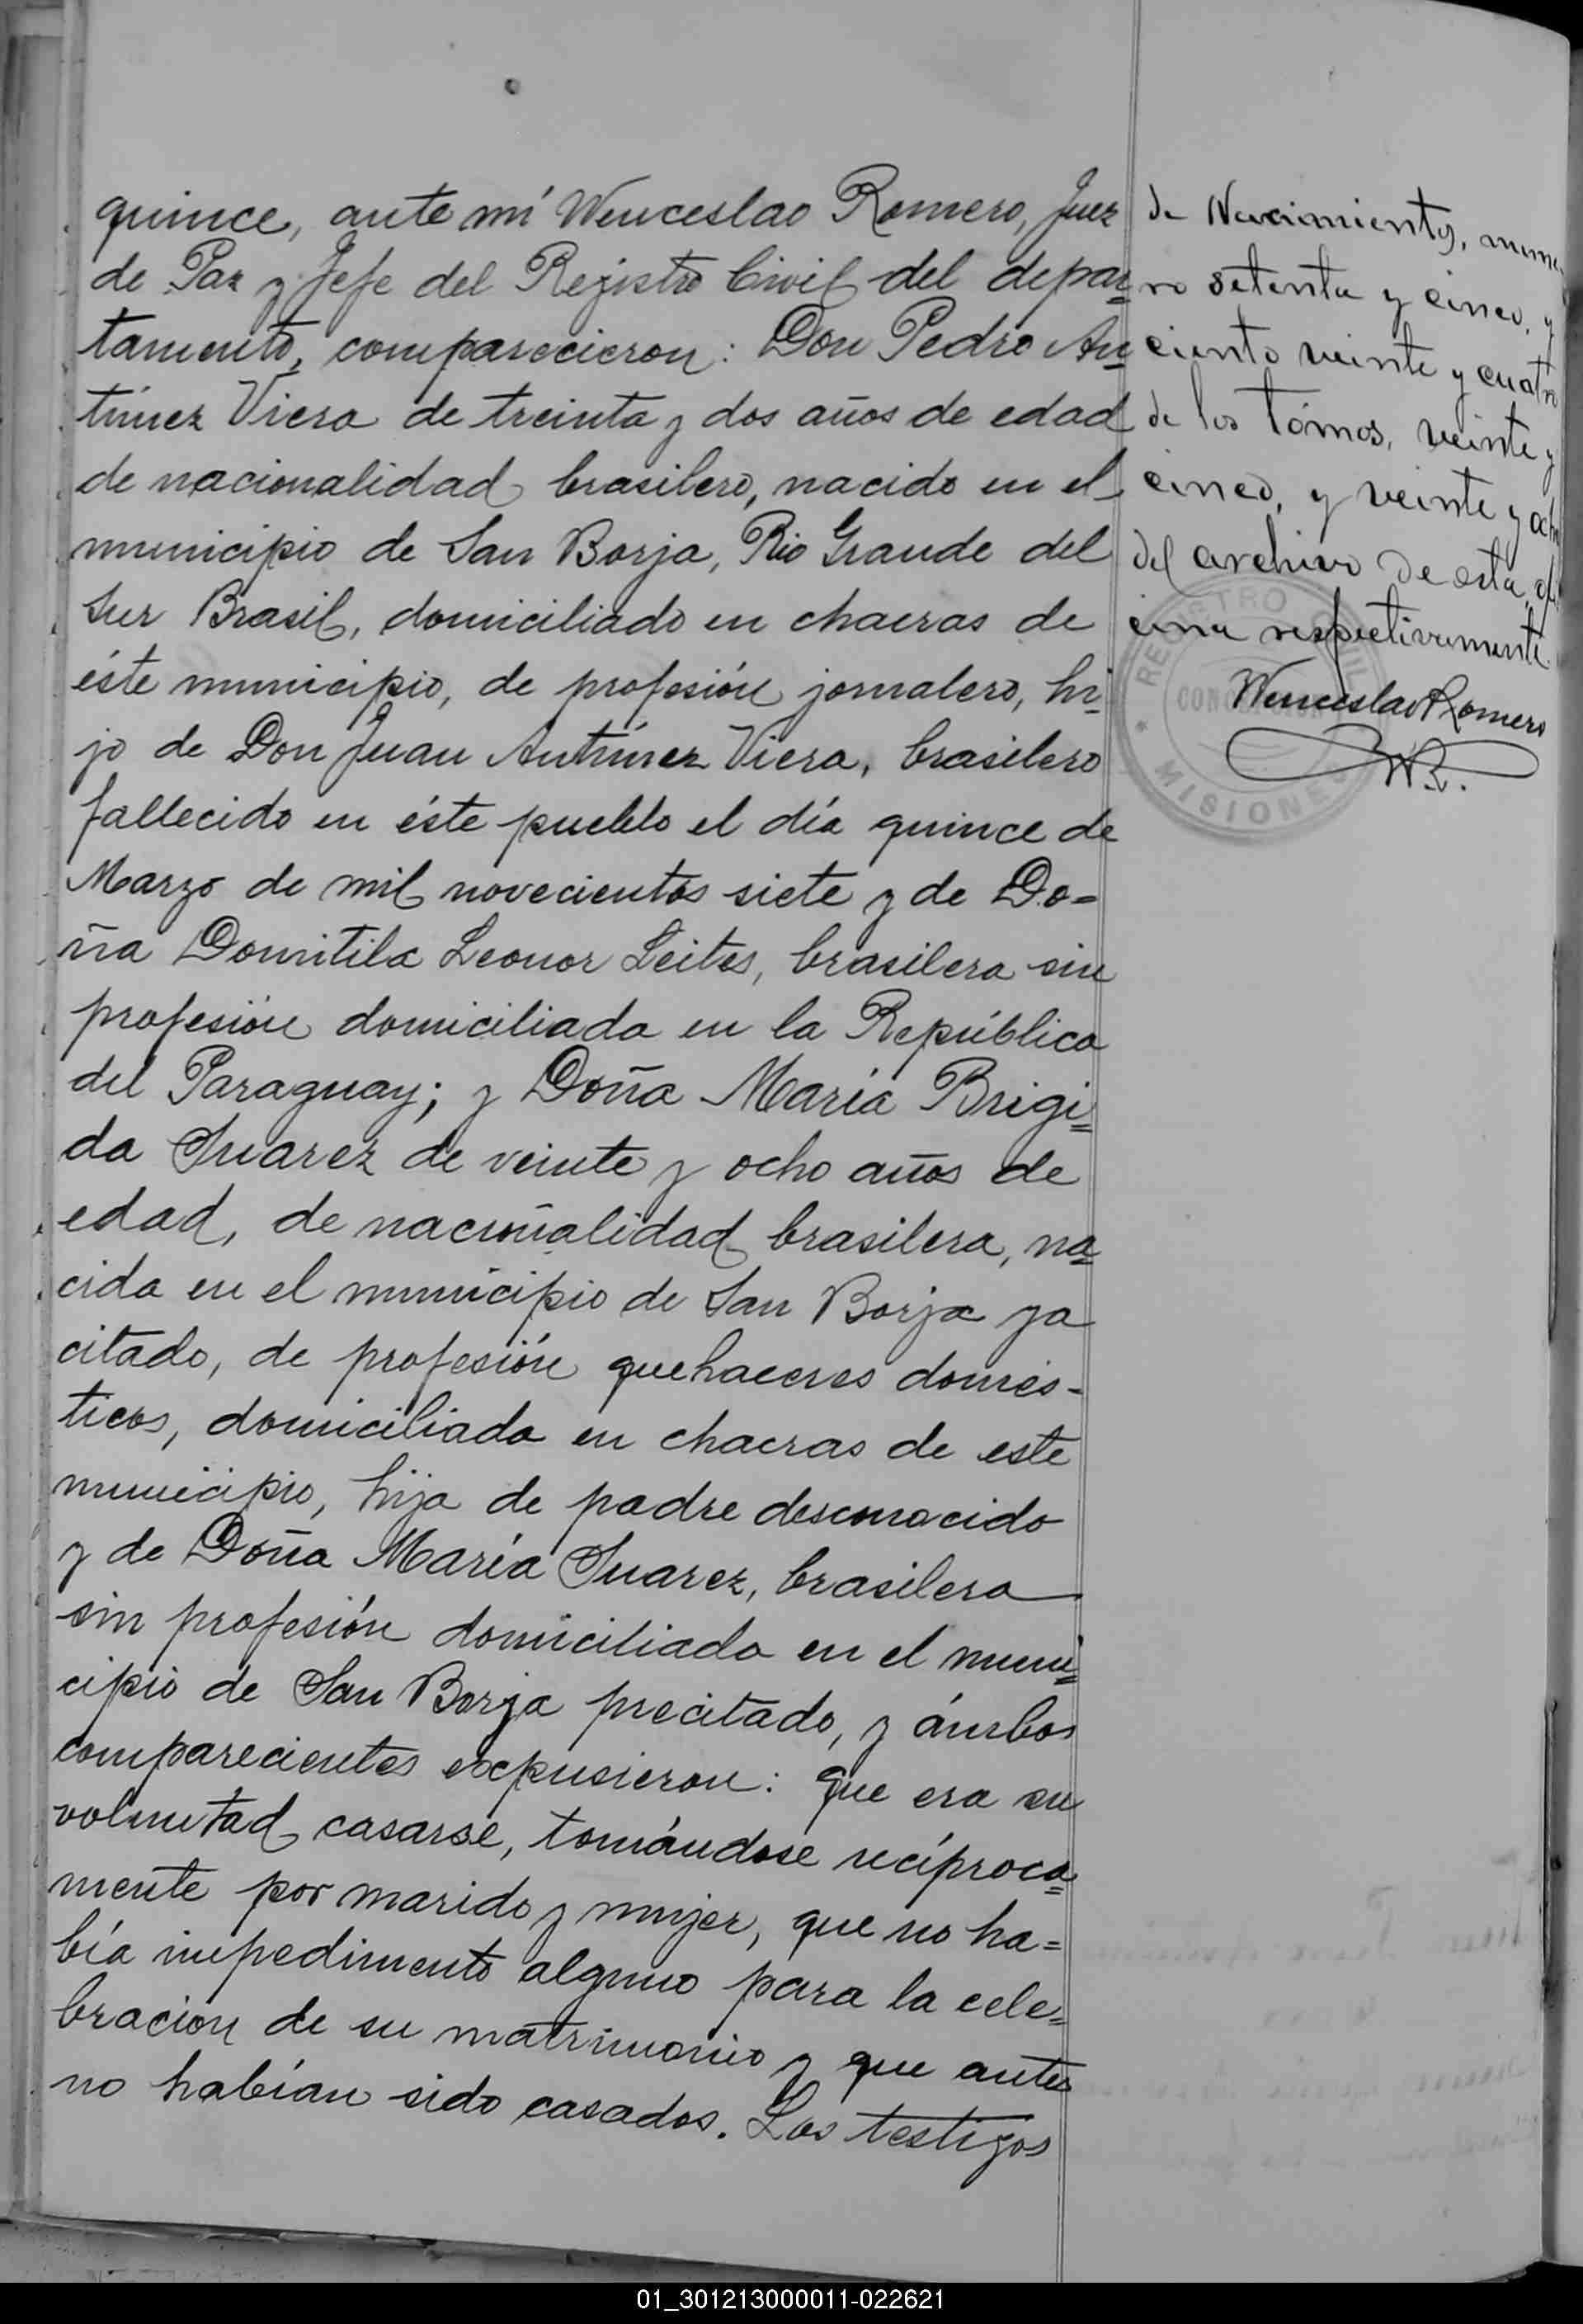 quince, ante mí Wenceslao Romero, Juez
de Paz y Jefe del Rejistro Civil del depar=
tamento, comparecieron: Don Pedro An=
túnez Viera de treinta y dos años de edad
de nacionalidad brasilero, nacido en el
municipio de San Borja, Rio Grande del
Sur Brasil, domiciliado en chacras de
éste municipio, de profesión jornalero, hi=
jo de Don Juan Antúnez Viera, brasilero
fallecido en éste pueblo el día quince de
Marzo de mil novecientos siete y de Do=
ña Domitila Leonor Leites, brasilera sin
profesión domiciliada en la República
del Paraguay; y Doña María Brigi=
da Suarez de veinte y ocho años de
edad, de nacionalidad brasilera, na=
cida en el municipio de San Borja ya
citado, de profesión quehaceres domés-
ticos, domiciliada en chacras de este
municipio, hija de padre desconocido
y de Doña María Suarez, brasilera
sin profesión domiciliada en el muni=
cipio de San Borja precitado, y ámbos
comparecientes expusieron: que era su
voluntad casarse, tomándose recíproca=
mente por marido y mujer, que no ha=
bía impedimento alguno para la cele=
bracion de su matrimonio y que antes
no habían sido casados. Los testigos
de Nacimiento, núme
ro setenta y cinco, y
ciento veinte y cuatro
de los tómos, veinte y
cinco, y veinte y ocho
del archivo de esta ofi
cina respectivamente.
Wenceslao Romero
W R.
REGISTRO CIVIL
CONCEPCION
MISIONES
01_301213000011-022621